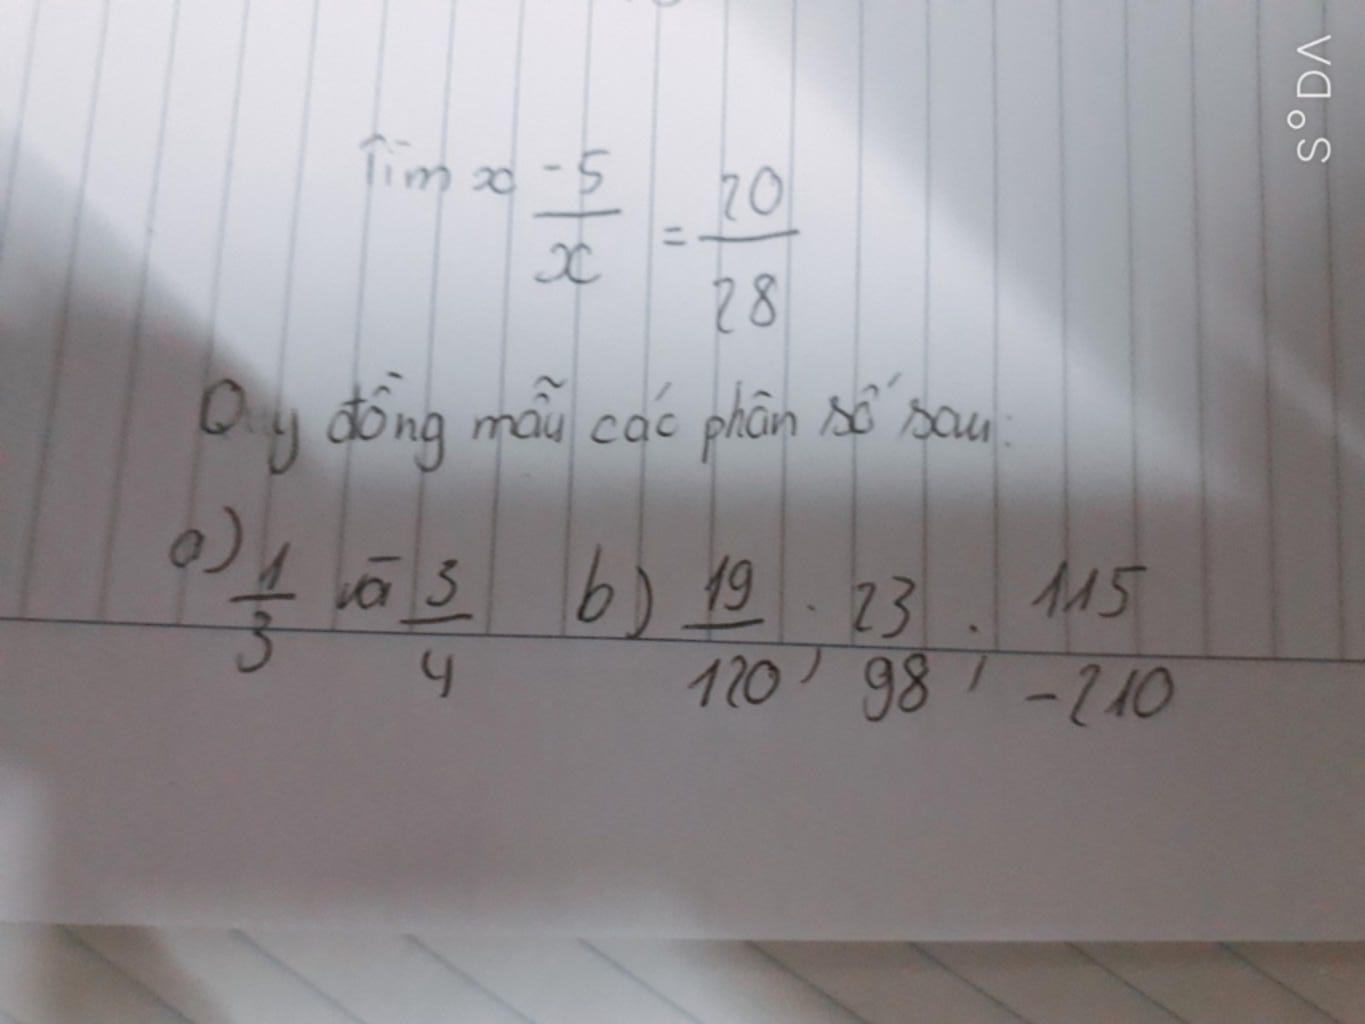 Tìm x -5/x = 20/28
Quy đồng mẫu các phân số sau:
a) 1/3 và 3/4 b) 19/120 ; 23/98 ; 115/-210
VD°S